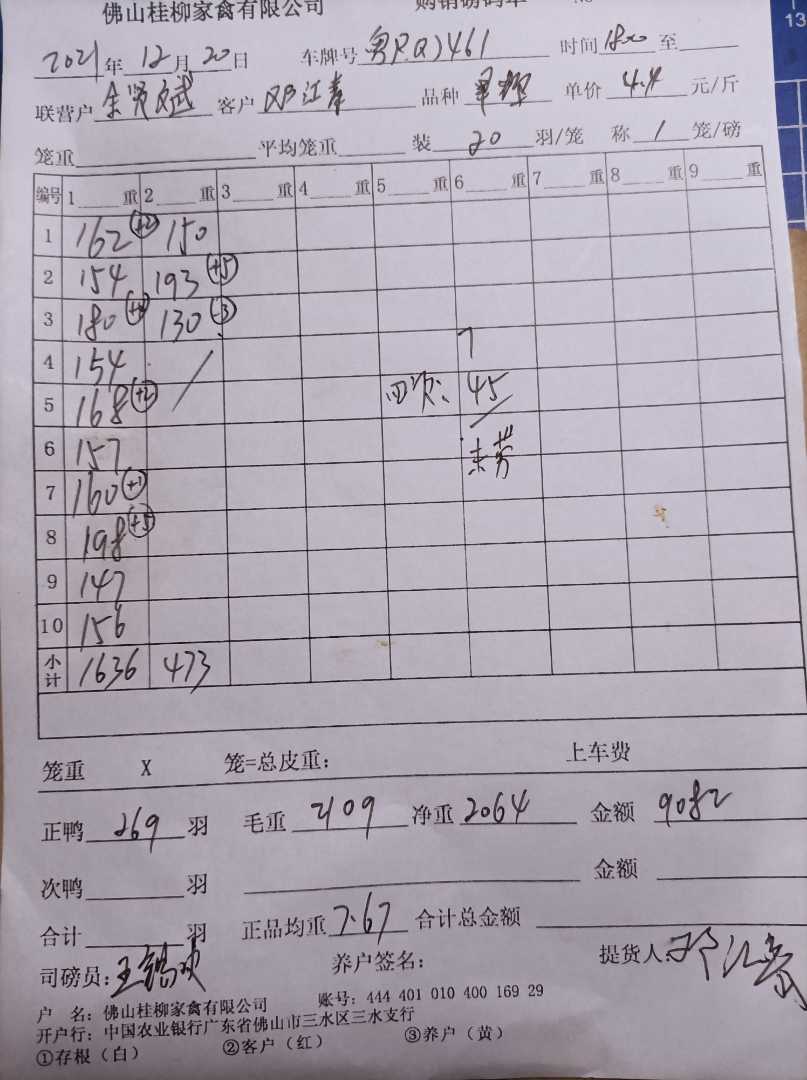 佛山桂柳家禽有限公司 购销磅码单 No
2021年12月20日 车牌号 粤RQ1461 时间1800至
联营户 余贤斌 客户 邓江春 品种 单价 4.4 元/斤
笼重 平均笼重 装 20 羽/笼 称 1 笼/磅
编号 1 重 2 重 3 重 4 重 5 重 6 重 7 重 8 重 9 重
1 162 (+2) 150
2 154 193 (+5)
3 180 (+4) 130 (-3)
4 154 /
5 168 (+2) 四次: 45
6 157
7 160 (+1)
8 198 (+5)
9 147
10 156
小计 1636 473
笼重 X 笼=总皮重: 上车费
正鸭 269 羽 毛重 2109 净重 2064 金额 9082
次鸭 羽 金额
合计 羽 正品均重 7.67 合计总金额
司磅员: 养户签名: 提货人: 邓江春
户 名: 佛山桂柳家禽有限公司 账号: 444 401 010 400 169 29
开户行: 中国农业银行广东省佛山市三水区三水支行
①存根（白） ②客户（红） ③养户（黄）
13